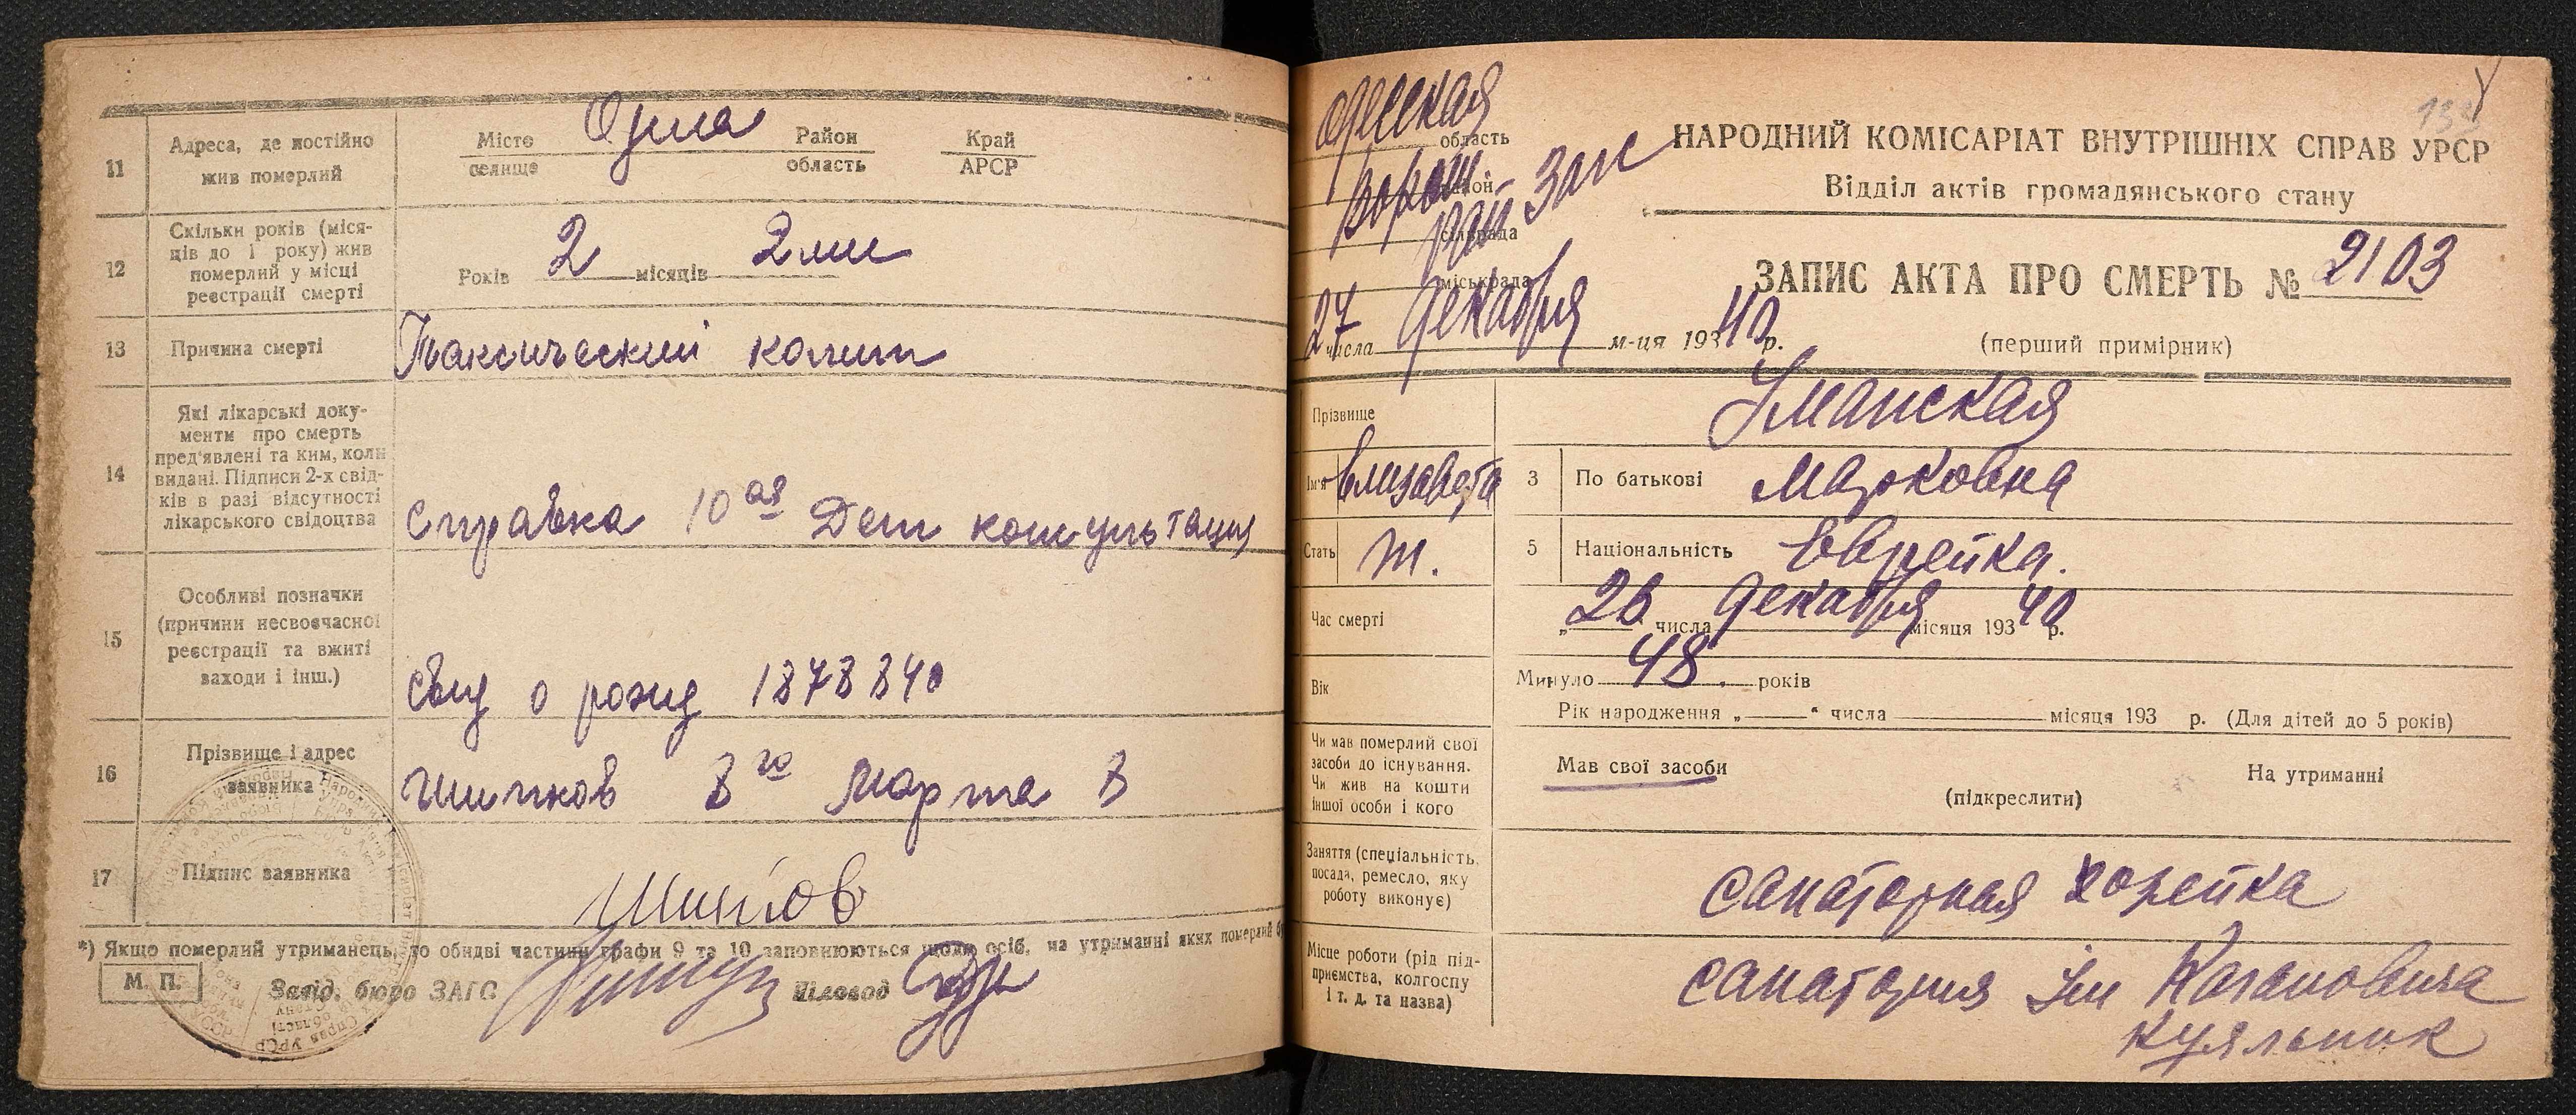 11
Адреса, де постійно
жив померлий
Місто
селище
Одеса
Район
область
Край
АРСР
12
Скільки років (міся-
ців до 1 року) жив
померлий у місці
реєстрації смерті
Років 2 місяців 2 ми
13
Причина смерті
Токсический колит
14
Які лікарські доку-
менти про смерть
пред'явлені та ким, коли
видані. Підписи 2-х свід-
ків в разі відсутності
лікарського свідоцтва
Справка 10ая Дет консультация
15
Особливі позначки
(причини несвоєчасної
реєстрації та вжиті
заходи і інш.)
свид о рожд 1878 840
16
Прізвище і адрес
заявника
8го Марта 8
17
Підпис заявника
*) Якщо померлий утриманець, то обидві частини графи 9 та 10 заповнюються щодо осіб, на утриманні яких померлий
М. П.
Завід. бюро ЗАГС
Діловод
Одесская
область
Ворош. район
рай Загс
сільрада
міськрада
27 числа декабря м-ця 1940 р.
133
НАРОДНИЙ КОМІСАРІАТ ВНУТРІШНІХ СПРАВ УРСР
Відділ актів громадянського стану
ЗАПИС АКТА ПРО СМЕРТЬ № 2103
(перший примірник)
Прізвище
Уманская
Ім'я Елизавета
3 По батькові Марковна
Стать ж.
5 Національність Еврейка.
Час смерті
„26 числа декабря місяця 193 40 р.
Вік
Минуло 48. років
Рік народження „ “ числа місяця 193 р. (Для дітей до 5 років)
Чи мав померлий свої
засоби до існування.
Чи жив на кошти
іншої особи і кого
Мав свої засоби
На утриманні
(підкреслити)
Заняття (спеціальність,
посада, ремесло, яку
роботу виконує)
санаторная
Місце роботи (рід під-
приємства, колгоспу
і т. д. та назва)
санатория Им Кагановича
Куяльник